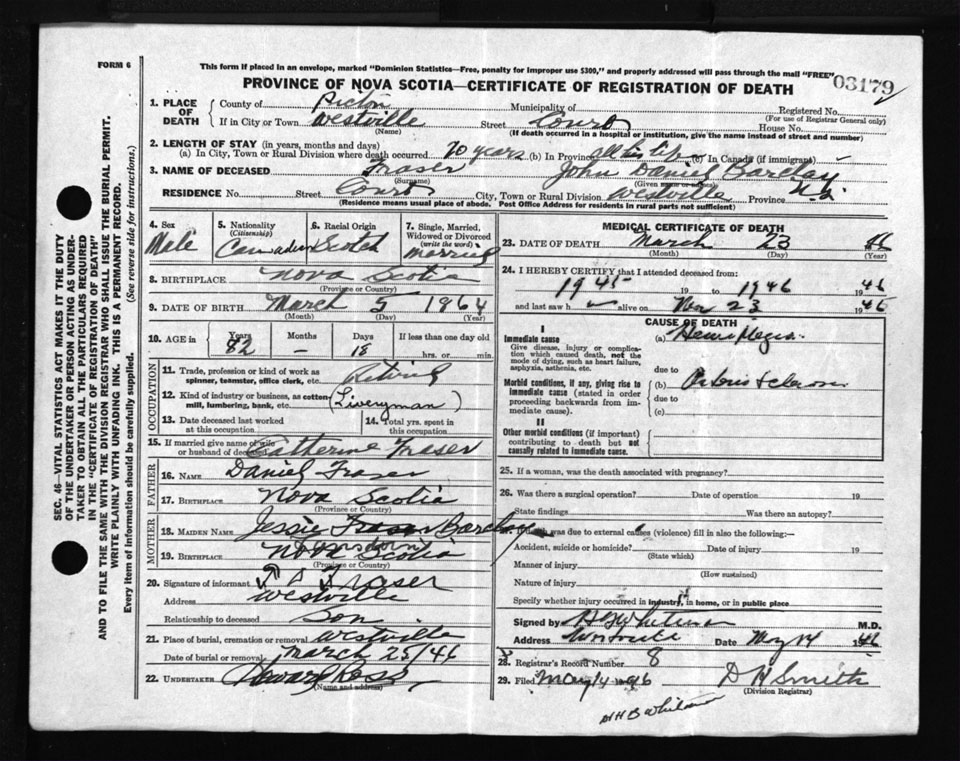 FORM 6
This form if placed in an envelope, marked "Dominion Statistics—Free, penalty for improper use $300," and properly addressed will pass through the mail "FREE"
PROVINCE OF NOVA SCOTIA—CERTIFICATE OF REGISTRATION OF DEATH
03179
1. PLACE OF DEATH
County of Pictou Municipality of Registered No.
(For use of Registrar General only)
If in City or Town Westville Street Court House No.
(Name) (If death occurred in a hospital or institution, give the name instead of street and number)
2. LENGTH OF STAY (in years, months and days)
(a) In City, Town or Rural Division where death occurred 70 years (b) In Province all his life (c) In Canada (if immigrant)
3. NAME OF DECEASED Fraser John Daniel Barclay
(Surname) (Given name or names)
RESIDENCE No. Street Court City, Town or Rural Division Westville Province N.S
(Residence means usual place of abode. Post Office Address for residents in rural parts not sufficient)
4. Sex Male
5. Nationality (Citizenship) Canadian
6. Racial Origin Scotch
7. Single, Married, Widowed or Divorced (write the word) Married
8. BIRTHPLACE Nova Scotia
(Province or Country)
9. DATE OF BIRTH March 5 1864
(Month) (Day) (Year)
10. AGE in Years 82 Months – Days 18 If less than one day hrs. or min.
OCCUPATION
11. Trade, profession or kind of work as spinner, teamster, office clerk, etc. Retired
12. Kind of industry or business, as cotton mill, lumbering, bank, etc. (Liveryman)
13. Date deceased last worked at this occupation
14. Total yrs. spent in this occupation
15. If married give name of wife or husband of deceased Catherine Fraser
FATHER
16. NAME Daniel Fraser
17. BIRTHPLACE Nova Scotia
(Province or Country)
MOTHER
18. MAIDEN NAME Jessie Fraser Barclay
19. BIRTHPLACE Nova Scotia
(Province or Country)
20. Signature of informant Fraser
Address Westville
Relationship to deceased Son
21. Place of burial, cremation or removal Westville
Date of burial or removal March 25/46
22. UNDERTAKER Howard Ross
(Name and address)
MEDICAL CERTIFICATE OF DEATH
23. DATE OF DEATH March 23 46
(Month) (Day) (Year)
24. I HEREBY CERTIFY that I attended deceased from:
1945 19 to 1946 1946
and last saw h alive on Nov 23 1945
CAUSE OF DEATH
I
Immediate cause
Give disease, injury or complication which caused death, not the mode of dying, such as heart failure, asphyxia, asthenia, etc.
(a) Hemiplegia
due to
Morbid conditions, if any, giving rise to immediate cause (stated in order proceeding backwards from immediate cause).
(b)
due to
(c)
II
Other morbid conditions (if important) contributing to death but not causally related to immediate cause.
25. If a woman, was the death associated with pregnancy?
26. Was there a surgical operation? Date of operation 19
State findings Was there an autopsy?
was due to external causes (violence) fill in also the following:—
Accident, suicide or homicide? Date of injury 19
(State which)
Manner of injury
(How sustained)
Nature of injury
Specify whether injury occurred in industry, in home, or in public place
Signed by Whitman M.D.
Address Westville Date May 14 1946
28. Registrar's Record Number 8
29. Filed May 14 1946 D H Smith
(Division Registrar)
H B Whitman
SEC. 46—VITAL STATISTICS ACT MAKES IT THE DUTY
OF THE UNDERTAKER OR PERSON ACTING AS UNDERTAKER TO OBTAIN ALL THE PARTICULARS REQUIRED
IN THE "CERTIFICATE OF REGISTRATION OF DEATH"
AND TO FILE THE SAME WITH THE DIVISION REGISTRAR WHO SHALL ISSUE THE BURIAL PERMIT.
WRITE PLAINLY WITH UNFADING INK. THIS IS A PERMANENT RECORD.
Every item of information should be carefully supplied. (See reverse side for instructions.)